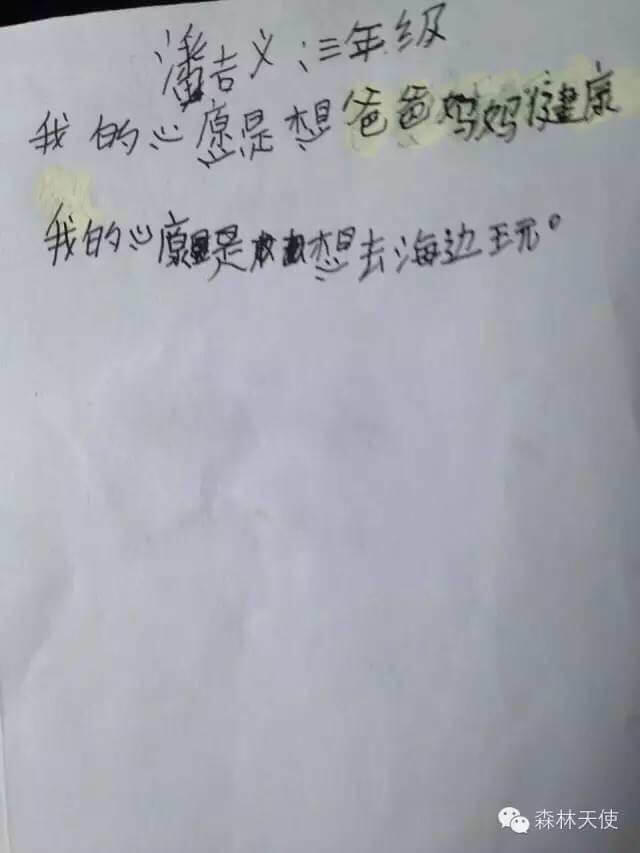 潘吉义:三年级
我的心愿是想爸爸妈妈健康
我的心愿是想去海边玩。
森林天使